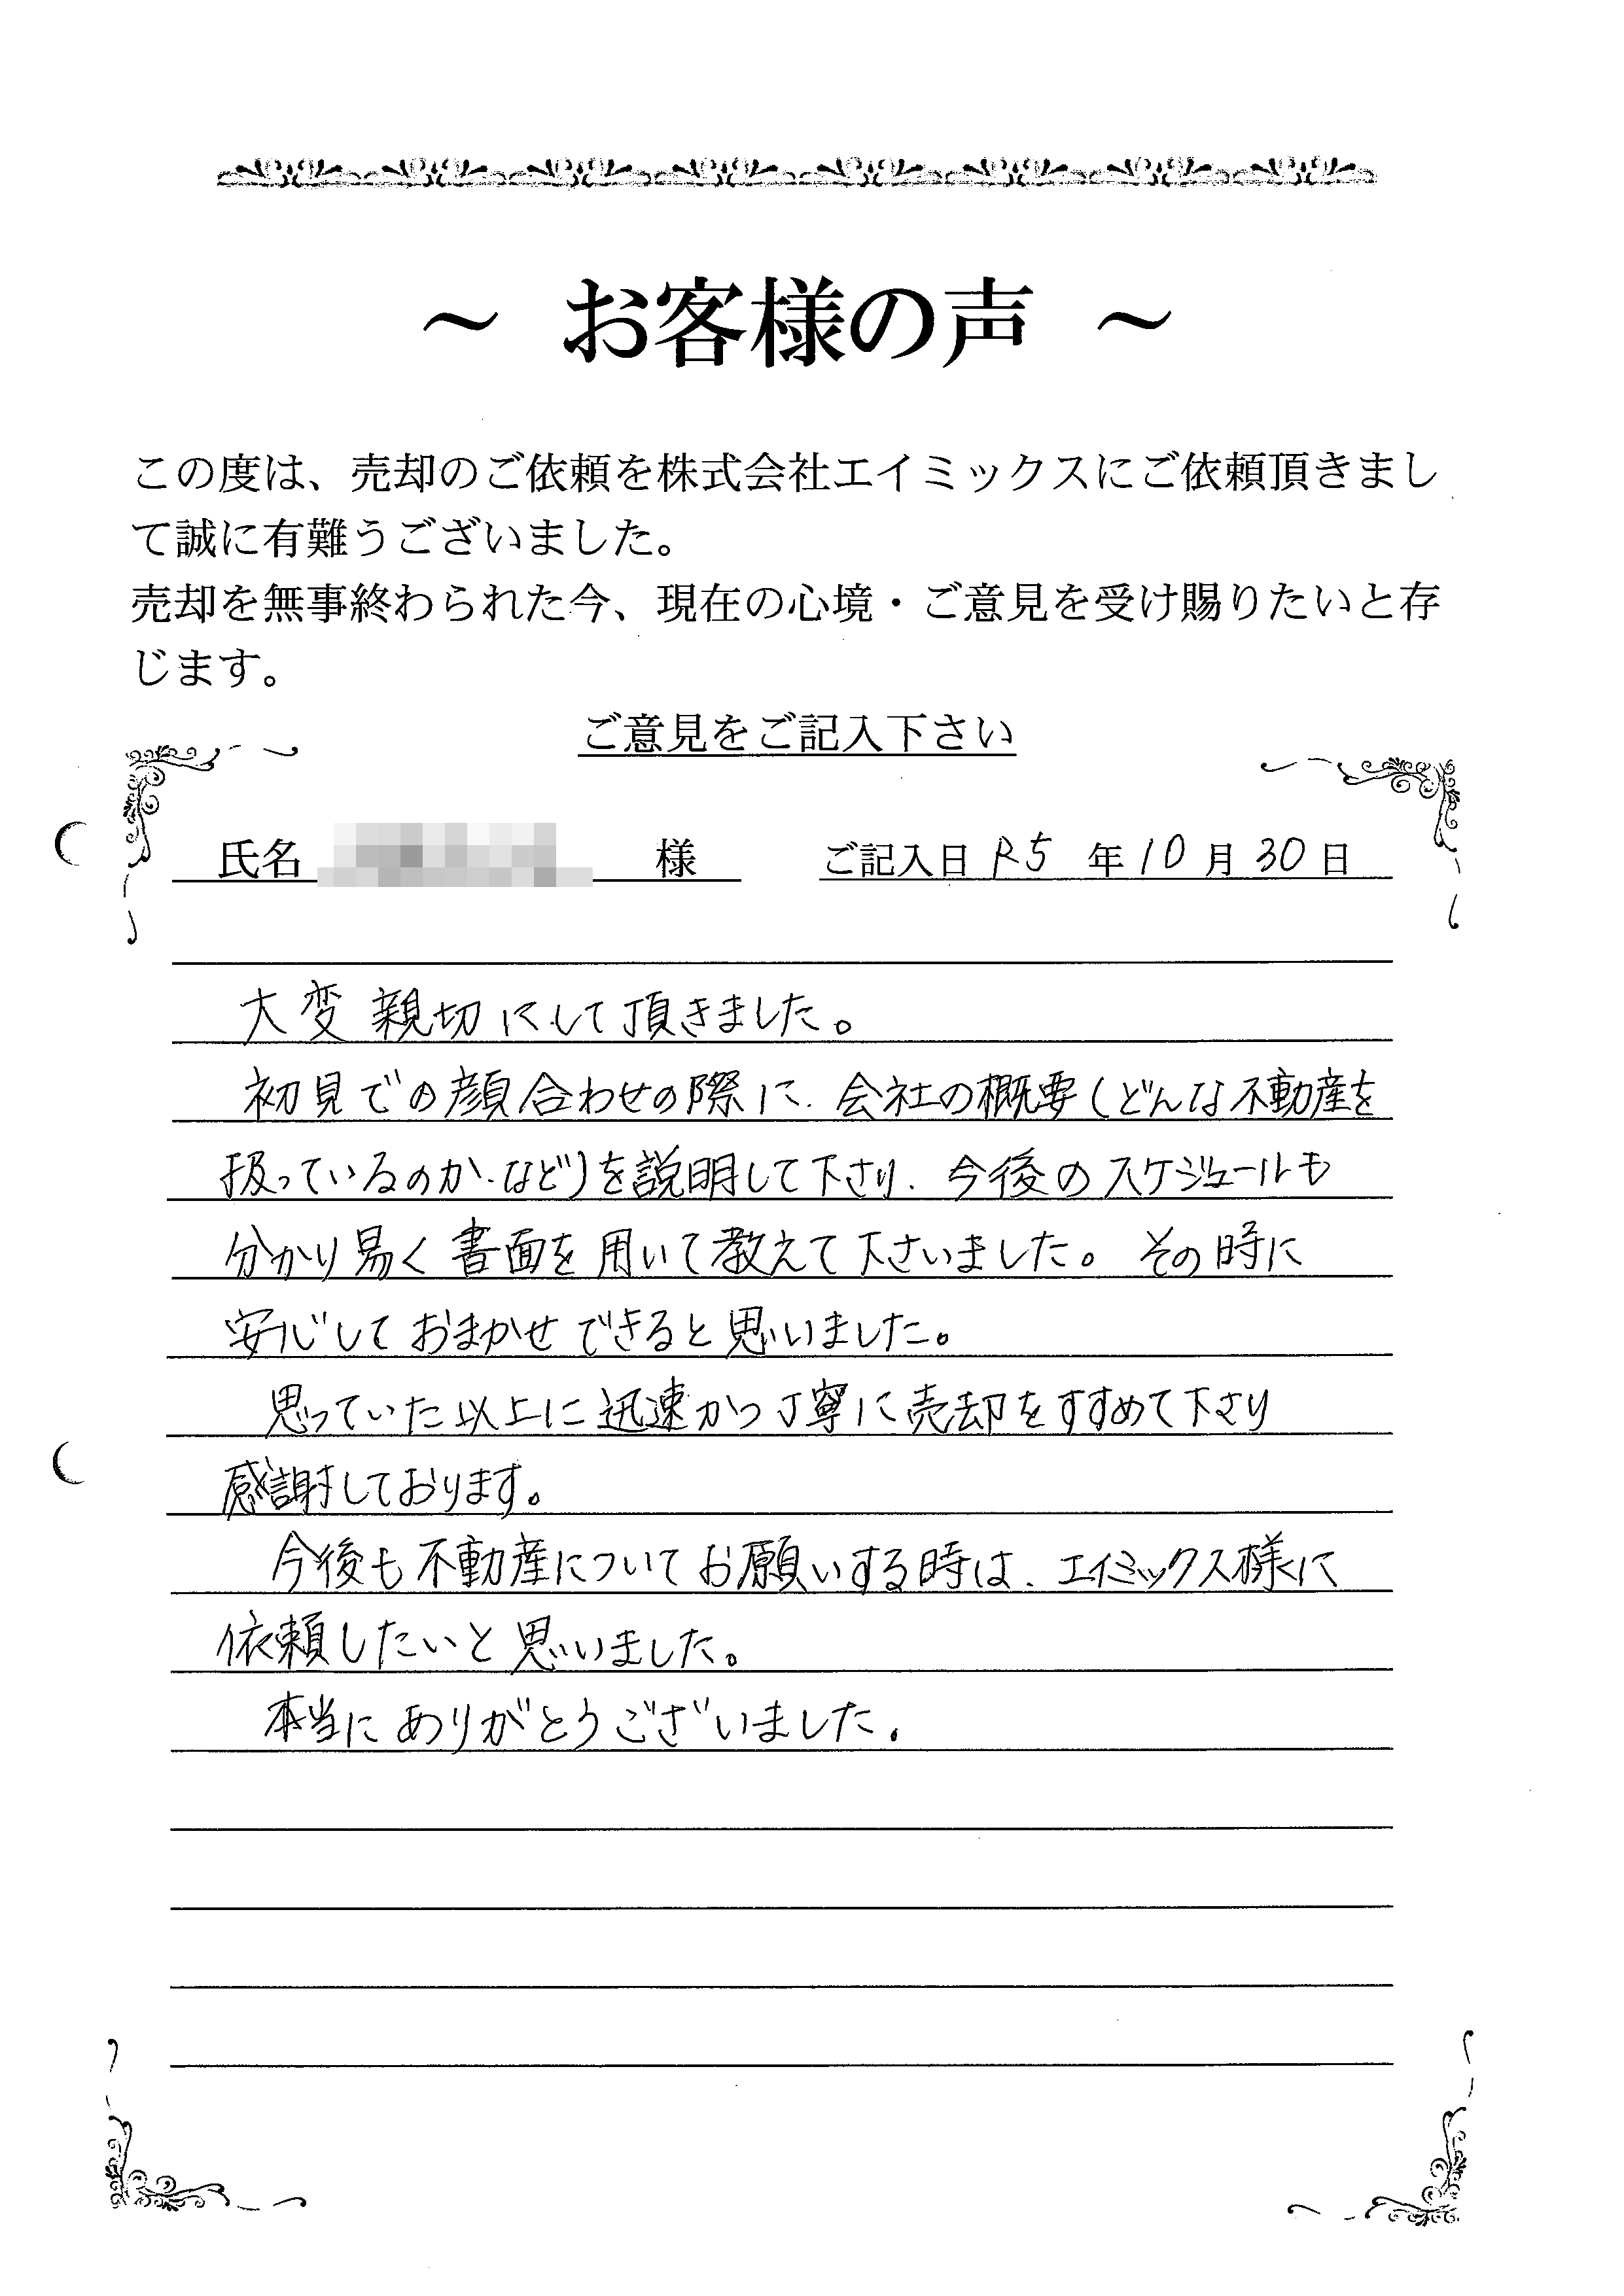 ～ お客様の声 ～
この度は、売却のご依頼を株式会社エイミックスにご依頼頂きまし
て誠に有難うございました。
売却を無事終わられた今、現在の心境・ご意見を受け賜りたいと存
じます。
ご意見をご記入下さい
氏名 様 ご記入日 R5 年 10 月 30 日
大変親切にして頂きました。
初見での顔合わせの際に、会社の概要（どんな不動産を
扱っているのか、など）を説明して下さり、今後のスケジュールも
分かり易く書面を用いて教えて下さいました。その時に
安心しておまかせできると思いました。
思っていた以上に迅速かつ丁寧に売却をすすめて下さり
感謝しております。
今後も不動産についてお願いする時は、エイミックス様に
依頼したいと思いました。
本当にありがとうございました。